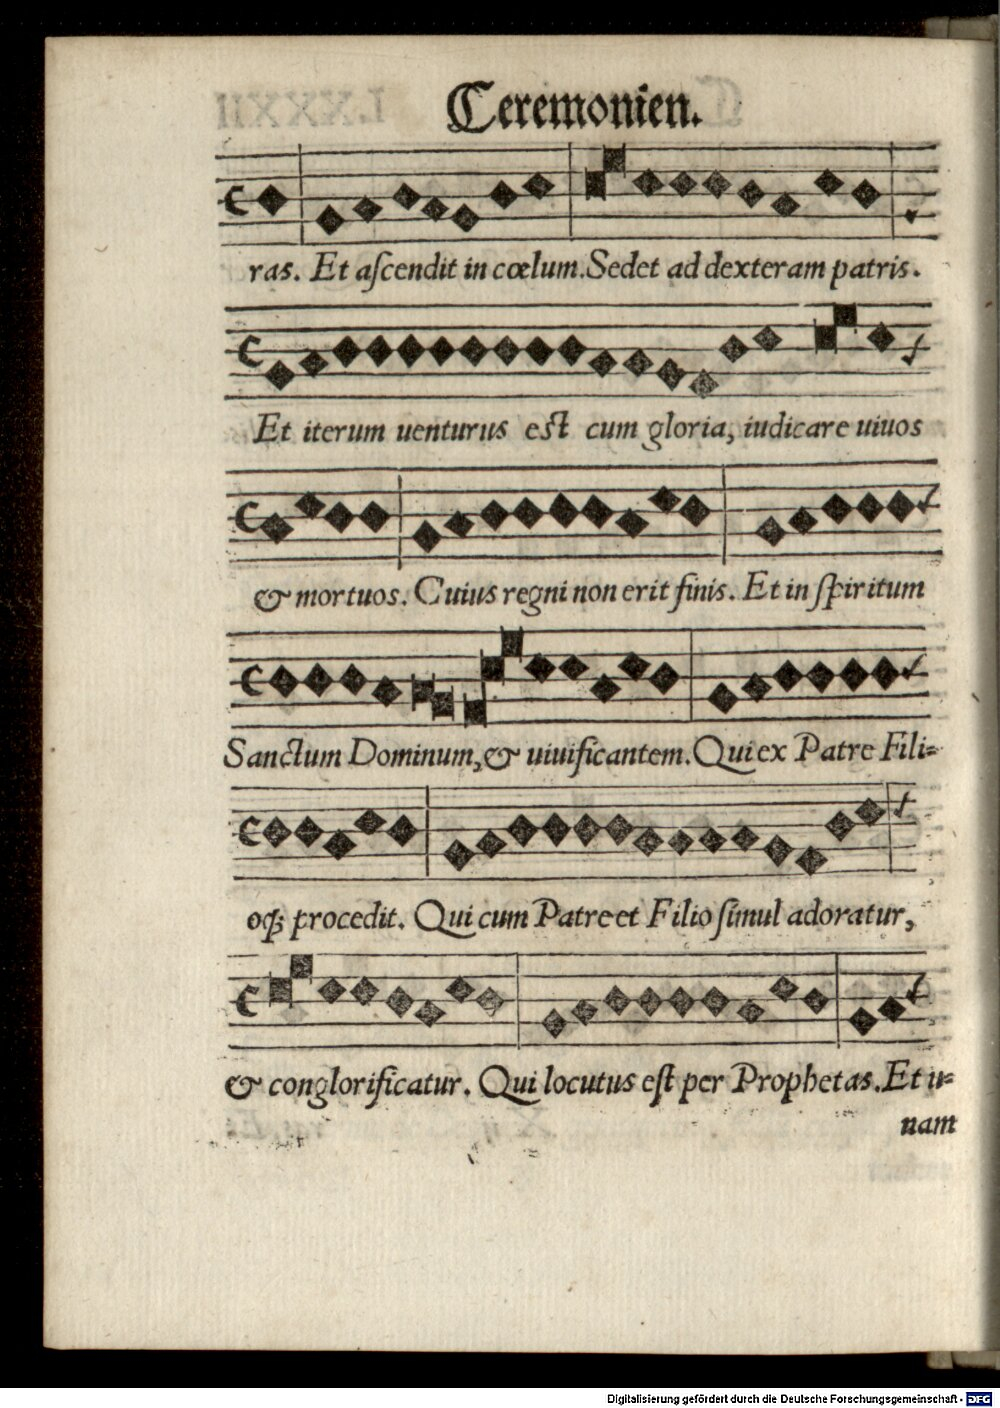 Ceremonien.
ras. Et aſcendit in cœlum. Sedet ad dexteram patris.
Et iterum uenturus eſt cum gloria, iudicare uiuos
& mortuos. Cuius regni non erit finis. Et in ſpiritum
Sanctum Dominum, & uiuificantem. Qui ex Patre Fili=
oq; procedit. Qui cum Patre et Filio ſimul adoratur,
& conglorificatur. Qui locutus eſt per Prophetas. Et u=
nam
Digitalisierung gefördert durch die Deutsche Forschungsgemeinschaft - DFG